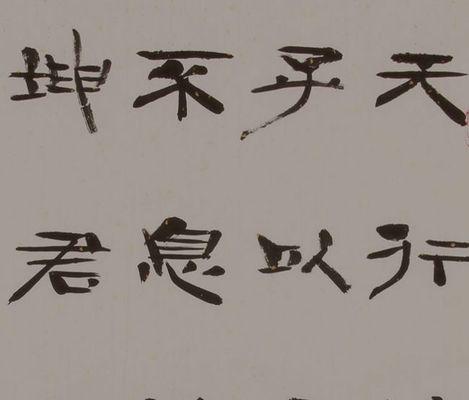 天行
子以
不息
坤君